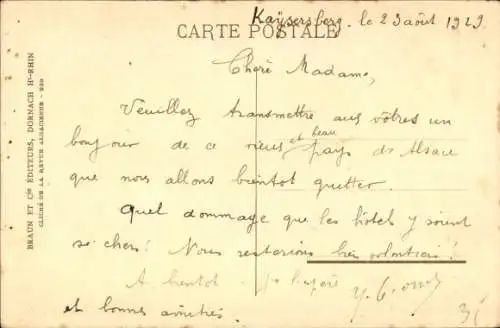 Kaysersberg. le 23 août 1929.
CARTE POSTALE
Chère Madame,
Veuillez transmettre aux vôtres un
bonjour de ce vieux et beau pays d'Alsace
que nous allons bientot quitter.
Quel dommage que les hôtels y soient
se chers! Nous resterions bien volontiers!
A bientot
et bonnes amitiés.
BRAUN ET Cie ÉDITEURS, DORNACH Ht-RHIN
CLICHÉ DE LA REVUE ALSACIENNE